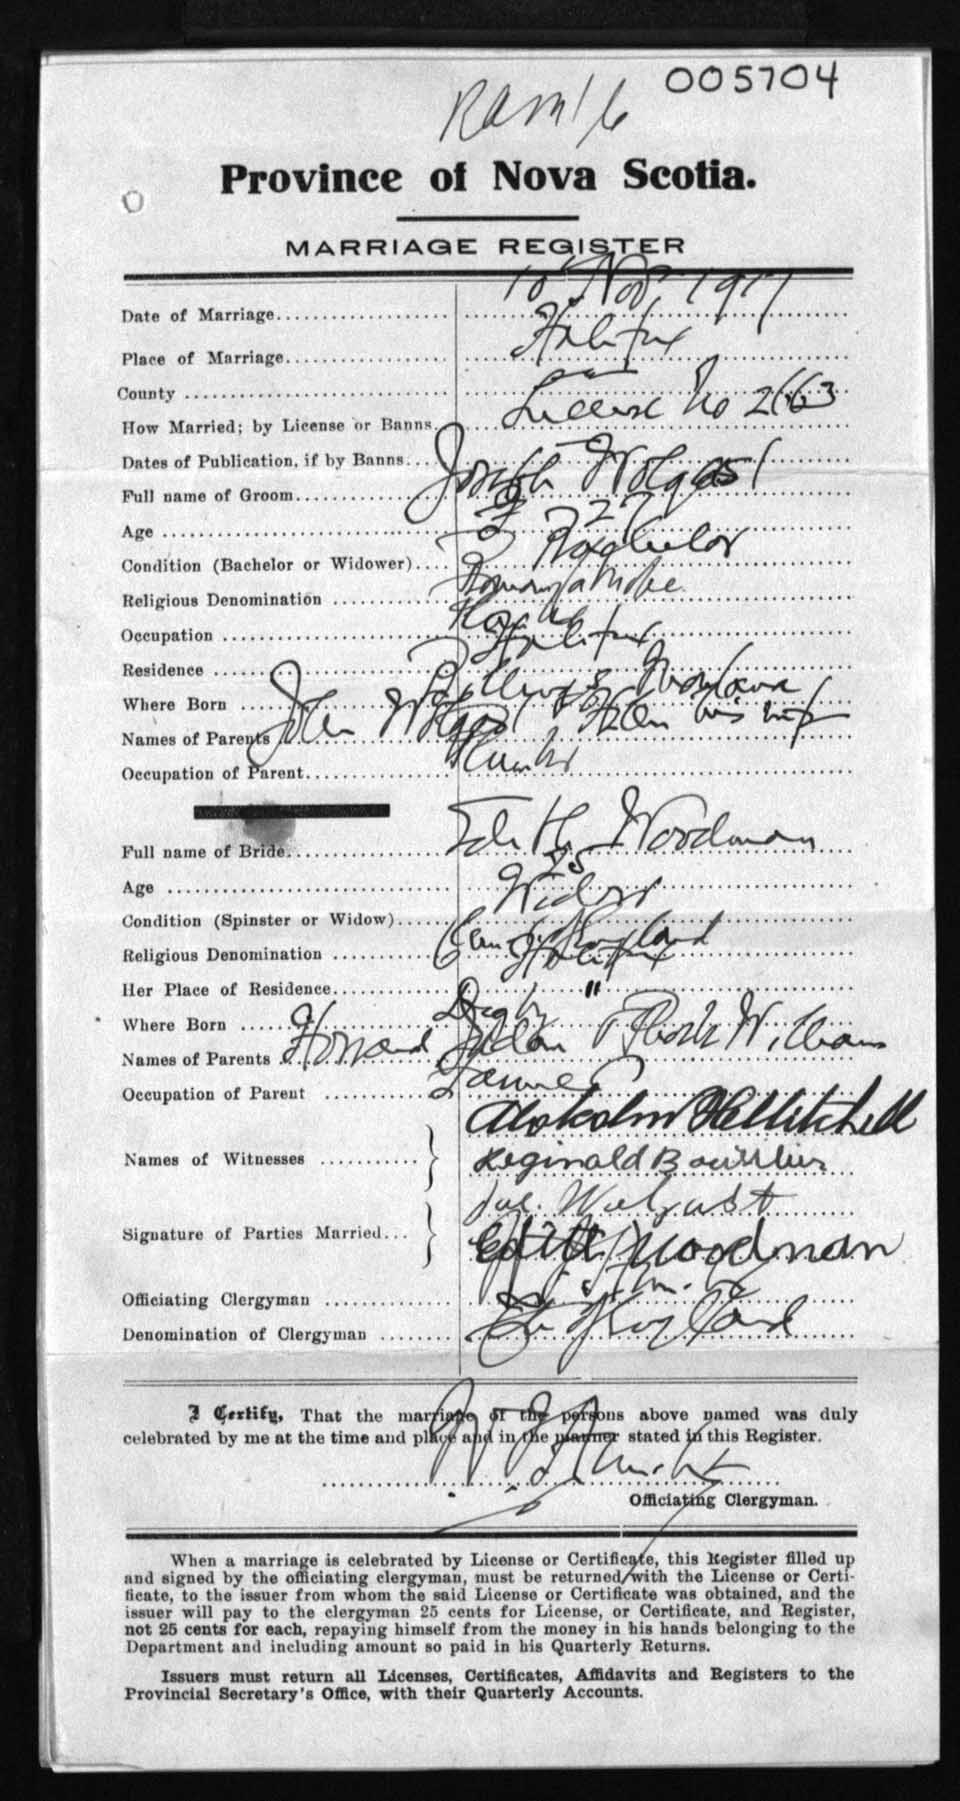 005704
Province of Nova Scotia.
MARRIAGE REGISTER
Date of Marriage 10th Nov. 1917
Place of Marriage Halifax
County
How Married; by License or Banns License No 2663
Dates of Publication, if by Banns
Full name of Groom Joseph Wolgast
Age 27
Condition (Bachelor or Widower) Bachelor
Religious Denomination
Occupation
Residence Halifax
Where Born Montana
Names of Parents John Wolgast & Helen his wife
Occupation of Parent
Full name of Bride Edith Woodman
Age 25
Condition (Spinster or Widow) Widow
Religious Denomination England
Her Place of Residence Halifax
"
Where Born Digby
Names of Parents Howard Williams
Occupation of Parent Farmer
Names of Witnesses Malcolm Mitchell
Reginald Boutilier
Signature of Parties Married Jos. Wolgast
Edith Woodman
Officiating Clergyman
Denomination of Clergyman Ch of England
I Certify, That the marriage of the persons above named was duly
celebrated by me at the time and place and in the manner stated in this Register.
Officiating Clergyman.
When a marriage is celebrated by License or Certificate, this Register filled up
and signed by the officiating clergyman, must be returned with the License or Certi-
ficate, to the issuer from whom the said License or Certificate was obtained, and the
issuer will pay to the clergyman 25 cents for License, or Certificate, and Register,
not 25 cents for each, repaying himself from the money in his hands belonging to the
Department and including amount so paid in his Quarterly Returns.
Issuers must return all Licenses, Certificates, Affidavits and Registers to the
Provincial Secretary's Office, with their Quarterly Accounts.